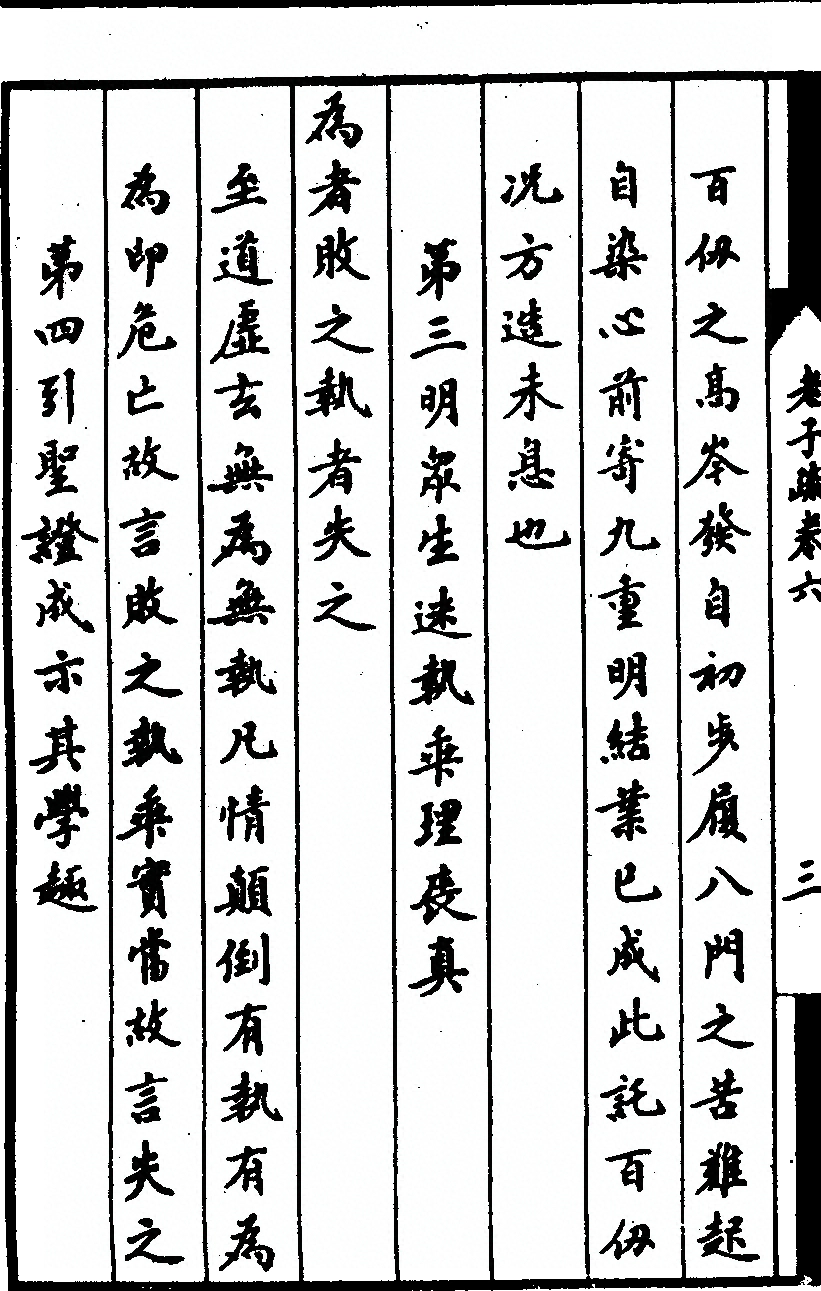 老子疏卷六
三
百仭之高岑發自初步履八門之苦難起
自染心前寄九重明結業已成此託百仭
况方造未息也
第三明衆生迷執乖理喪真
為者敗之執者失之
至道虛玄無為無執凡情顛倒有執有為
為即危亡故言敗之執乖實當故言失之
第四引聖證成示其學趣